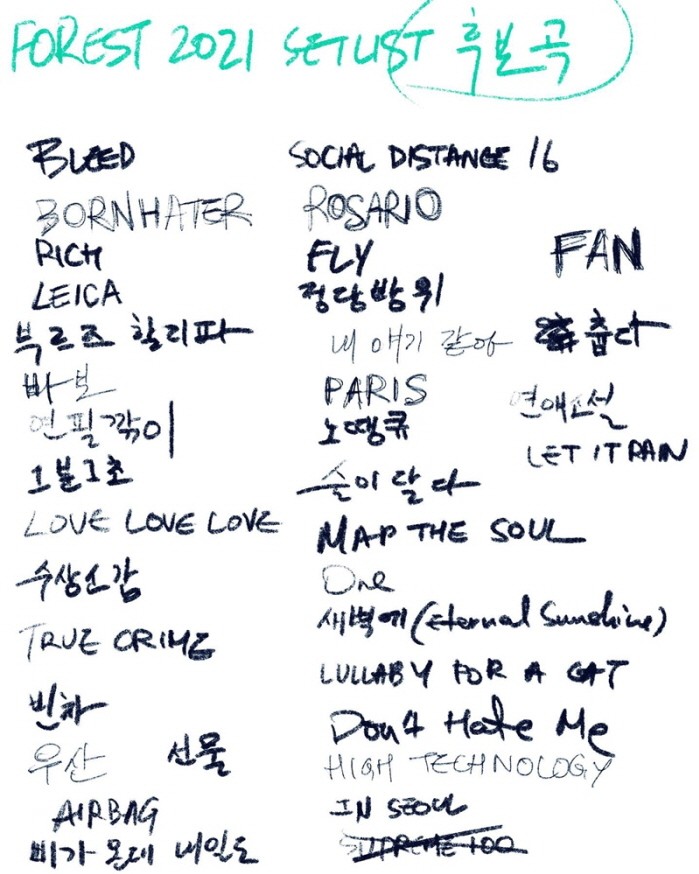 FOREST 2021 SETLIST 후보곡
BLEED
BORNHATER
RICH
LEICA
부르즈 할리파
바보
연필깎이
1분1초
LOVE LOVE LOVE
수상소감
TRUE CRIME
빈차
우산
선물
AIRBAG
비가 온대 내일도
SOCIAL DISTANCE 16
ROSARIO
FLY
정당방위
내 얘기 같아
PARIS
노땡큐
술이 달다
MAP THE SOUL
One
새벽에 (Eternal Sunshine)
LULLABY FOR A CAT
Don't Hate Me
HIGH TECHNOLOGY
IN SEOUL
SUPREME 100
FAN
춥다
연애소설
LET IT RAIN